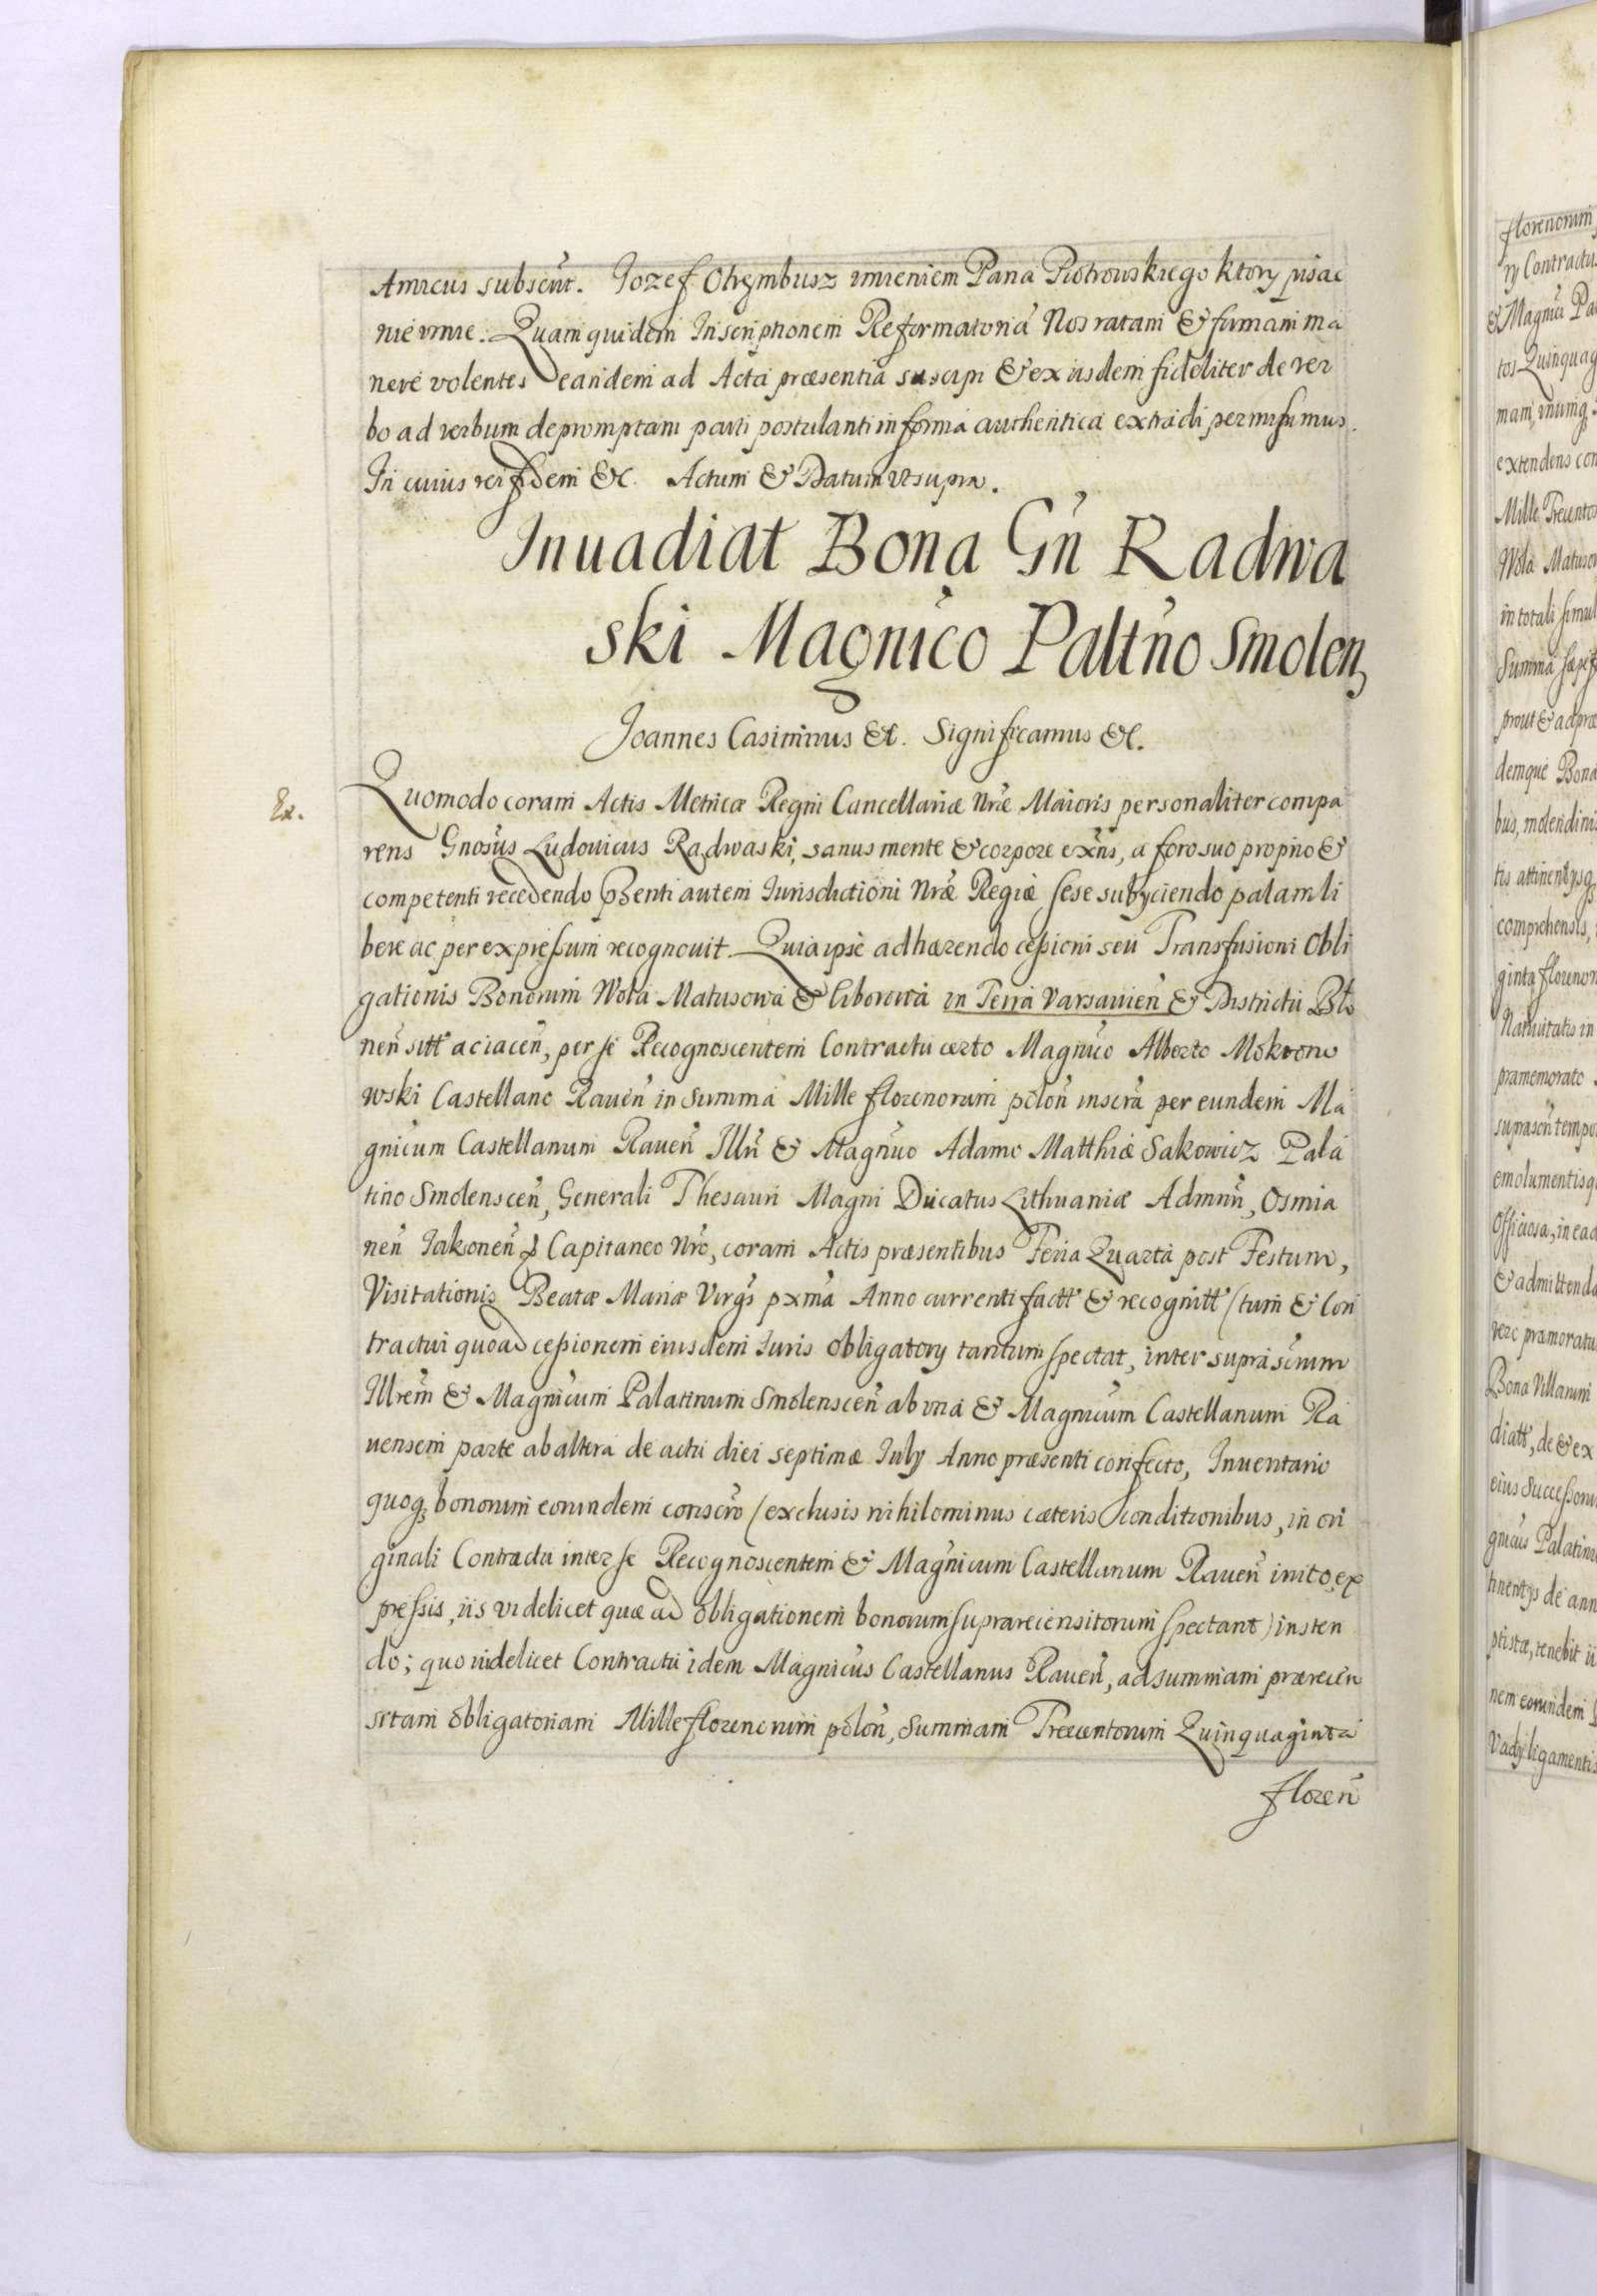 Amicus subscńt. Jozef Otrembusz imieniem Pana Piotrowskiego ktory pisac
nie vmie. Quam quidem Inscriptionem Reformatoriã Nos ratam & firmam ma
nere volentes eandem ad Acta præsentia suscipi & ex iisdem fideliter de ver
bo ad verbum depromptam parti postulanti in forma authentica extradi permisimus.
In cuius rei fidem &c. Actum & Datum vt supra.
Inuadiat Bona Gń Radwa
ski Magnico Paltńo Smolen,
Joannes Casimirus &c. Significamus &c.
Ex.
Quomodo coram Actis Metricæ Regni Cancellariæ Nræ Maioris personaliter compa
rens Gnosus Ludouicus Radwaski, sanus mente & corpore exńs, a foro suo proprio &
competenti recedendo Pṡenti autem Iurisdictioni Nræ Regiæ sese subijciendo palam li
bere ac per expressum recognouit. Quia ipse adhærendo cessioni seu Transfusioni Obli
gationis Bonorum Wola Matusowa & liborowa in Terra Varsauień & Districtu Blo
neń sitt aciaceń, per se Recognoscentem Contractu certo Magnico Alberto Mokrono
wski Castellano Raueń in Summa Mille florenorum poloń inscra per eundem Ma
gnicum Castellanum Raueń Illri & Magnico Adamo Matthiæ Sakowicz Pala
tino Smolensceń, Generali Thesauri Magni Ducatus Lithuaniæ Admnri, Osmia
neń Jakoneń & Capitaneo Nro, coram Actis præsentibus Feria Quarta post Festum,
Visitationis Beatæ Mariæ Virgs pxma Anno currenti factt & recognitt (tum & Con
tractui quoad cessionem eiusdem Iuris obligatorij tantum spectat, inter supra scrum
Illrem & Magnicum Palatinum Smolensceń ab vna & Magnicum Castellanum Ra
uensem parte ab altera de actu diei septimæ July Anno præsenti confecto, Inuentario
quoq; bonorum eorundem conscro (exclusis nihilominus cæteris conditionibus, in ori
ginali Contractu inter se Recognoscentem & Magnicum Castellanum Raueń inito, ex
pressis, iis videlicet quæ ad obligationem bonorum suprarecensitorum spectant) insten
do; quo uidelicet Contractu idem Magnicus Castellanus Raueń, ad summam præreceń
sitam obligatoriam Mille florenorum poloń, Summam Trecentorum Quinquaginta
floreń
florenorum
rij Contractus
& Magnici Pa
tos Quinquag
mam, vnumq;
extendens con
Mille Trecentos
Wola Matusow
in totali simul
Summa sæpef
prout & ad præ
demque Bona
bus, molendinis
tis attinentijsq;
comprehensis,
ginta florenor
Natiuitatis in
præmemorato
suprascń tempo
emolumentisq
Officiosa, in ead
& admittenda
vero præmoratu
Bona Villarum
diatt, de & ex
eius Successoru
gnicus Palatinu
tinentijs de ann
ptistæ, tenebit ii
nem eorundem
Vadij ligamentis